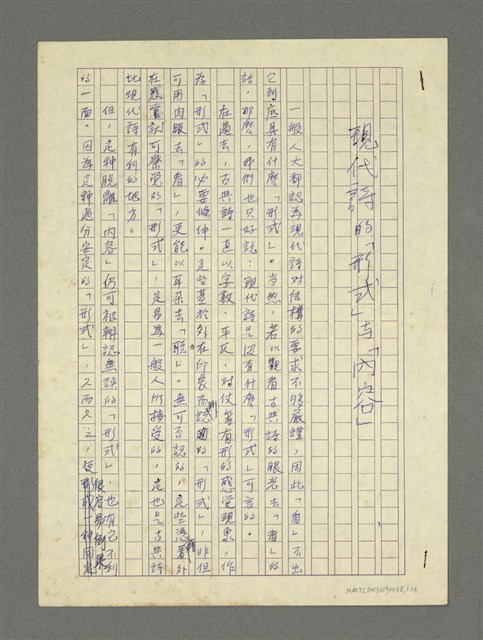 現代詩的「形式」與「內容」
一般人大都認為現代詩對結構的要求不夠嚴謹，因此「看」不出
它到底具有什麼「形式」。當然，若以觀看古典詩的眼光去「看」的
話，那麼，我們也只好說：現代詩是沒有什麼「形式」可言的。
在過去，古典詩一直以字數、平仄、對仗等有形的感覺現象，作
為「形式」的必要條件。這些基於外在印象而認的「形式」，非但
可用肉眼去「看」，更能以耳朵去「聽」。無可否認的，這些憑藉外
在感官就可察覺的「形式」，是易為一般人所接受的，這也是古典詩
比現代詩有利的地方。
但，這種脫離「內容」仍可被辨認無誤的「形式」，也有它不利
的一面。因為這種過分安定的「形式」，久而久之，很容易僵
NMTL20130190038,1/4